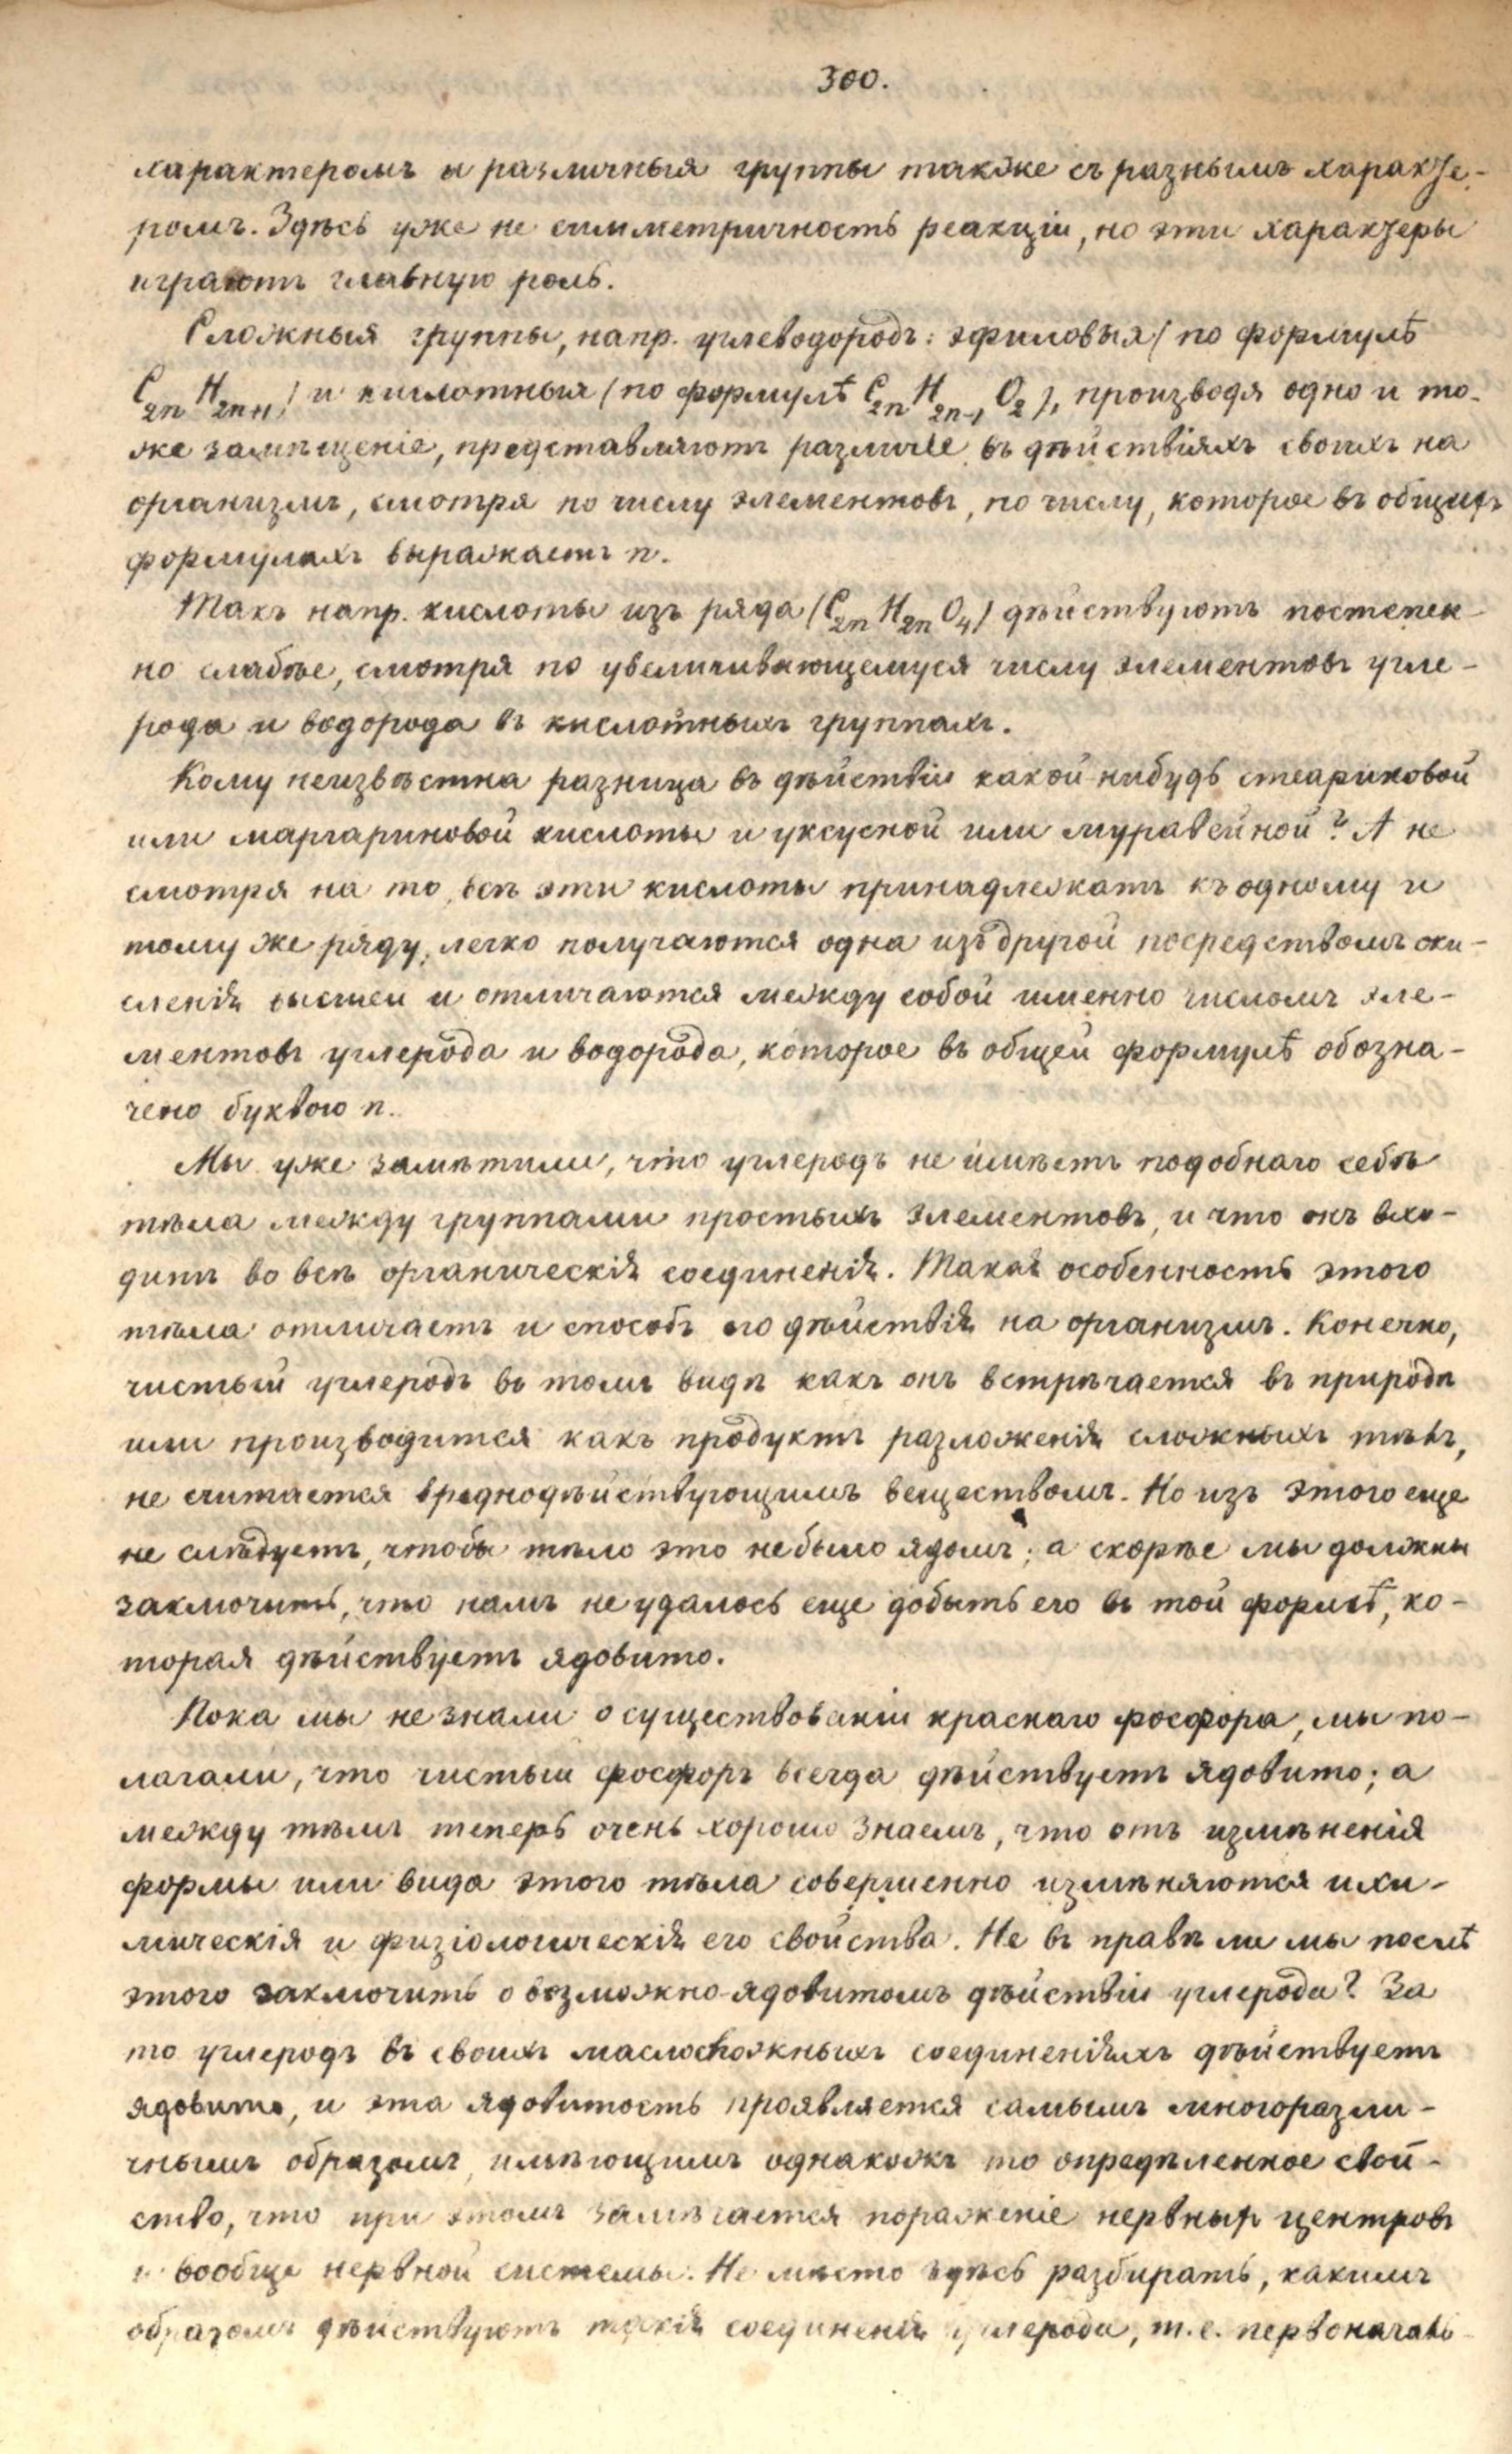 300.
характеромъ и различныя группы также съ разнымъ характе-
ромъ. Здѣсь уже не симметричность реакціи, но эти характеры
играютъ главную роль.
Сложныя группы, напр. углеводородъ: эфиловыя (по формулѣ
C₂ₙH₂ₙ₊₁) и кислотныя (по формулѣ C₂ₙH₂ₙ₋₁O₂), производя одно и то-
же замѣщеніе, представляютъ различіе въ дѣйствіяхъ своихъ на
организмъ, смотря по числу элементовъ, по числу, которое въ общихъ
формулахъ выражаетъ n.
Такъ напр. кислоты изъ ряда (C₂ₙH₂ₙO₄) дѣйствуютъ постепен-
но слабѣе, смотря по увеличивающемуся числу элементовъ угле-
рода и водорода въ кислотныхъ группахъ.
Кому неизвѣстна разница въ дѣйствіи какой нибудь стеариновой
или маргариновой кислоты и уксусной или муравейной? А не
смотря на то, всѣ эти кислоты принадлежатъ къ одному и
тому же ряду, легко получаются одна изъ другой посредствомъ оки-
сленія высшей и отличаются между собой именно числомъ эле-
ментовъ углерода и водорода, которое въ общей формулѣ обозна-
чено буквою n.
Мы уже замѣтили, что углеродъ не имѣетъ подобнаго себѣ
тѣла между группами простыхъ элементовъ, и что онъ вхо-
дитъ во всѣ органическія соединенія. Такая особенность этого
тѣла отличаетъ и способъ его дѣйствія на организмъ. Конечно,
чистый углеродъ въ томъ видѣ какъ онъ встрѣчается въ природѣ
или производится какъ продуктъ разложенія сложныхъ тѣлъ,
не считается вреднодѣйствующимъ веществомъ. Но изъ этого еще
не слѣдуетъ, чтобы тѣло это не было ядомъ; а скорѣе мы должны
заключить, что намъ не удалось еще добыть его въ той формѣ, ко-
торая дѣйствуетъ ядовито.
Пока мы не знали о существованіи краснаго фосфора, мы по-
лагали, что чистый фосфоръ всегда дѣйствуетъ ядовито; а
между тѣмъ теперь очень хорошо знаемъ, что отъ измѣненія
формы или вида этого тѣла совершенно измѣняются и хи-
мическія и физіологическія его свойства. Не въ правѣ ли мы послѣ
этого заключить о возможно-ядовитомъ дѣйствіи углерода? За
то углеродъ въ своихъ малосложныхъ соединеніяхъ дѣйствуетъ
ядовито, и эта ядовитость проявляется самымъ многоразли-
чнымъ образомъ, имѣющимъ однакожъ то опредѣленное свой-
ство, что при этомъ замѣчается пораженіе нервныхъ центровъ
и вообще нервной системы. Не мѣсто здѣсь разбирать, какимъ
образомъ дѣйствуютъ такія соединенія углерода, т.е. первоначаль-